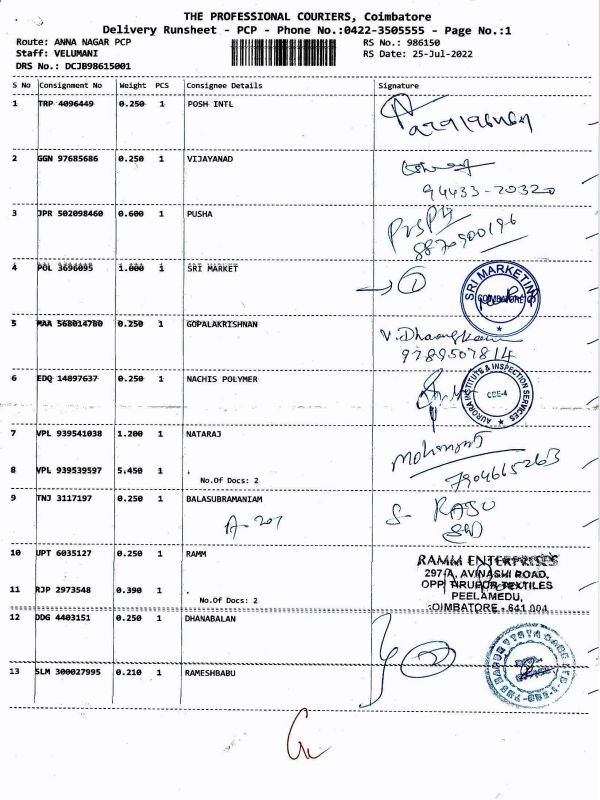 THE PROFESSIONAL COURIERS, Coimbatore
Delivery Runsheet - PCP - Phone No.:0422-3505555 - Page No.:1
Route: ANNA NAGAR PCP
Staff: VELUMANI
DRS No.: DCJB98615001
RS No.: 986150
RS Date: 25-Jul-2022
S No Consignment No Weight PCS Consignee Details Signature
1 TRP 4096449 0.250 1 POSH INTL
2 GGN 97685686 0.250 1 VIJAYANAD
94433-20320
3 JPR 502098460 0.600 1 PUSHA
8870900196
4 POL 3696095 1.000 1 SRI MARKET
1
SRI MARKETING
COIMBATORE
5 MAA 568014780 0.250 1 GOPALAKRISHNAN
9789507814
6 EDQ 14897637 0.250 1 NACHIS POLYMER
AURORA INSTITUTE & INSPECTION SERVICES
CBE-4
7 VPL 939541038 1.200 1 NATARAJ
8 VPL 939539597 5.450 1 .
No.Of Docs: 2
7904665263
9 TNJ 3117197 0.250 1 BALASUBRAMANIAM
A-207
S- RAJU
10 UPT 6035127 0.250 1 RAMM
RAMM ENTERPRISES
297-A, AVINASHI ROAD,
OPP. TIRUPUR TEXTILES
PEELAMEDU,
COIMBATORE - 641 004
11 RJP 2973548 0.390 1 .
No.Of Docs: 2
12 DDG 4403151 0.250 1 DHANABALAN
13 SLM 300027995 0.210 1 RAMESHBABU